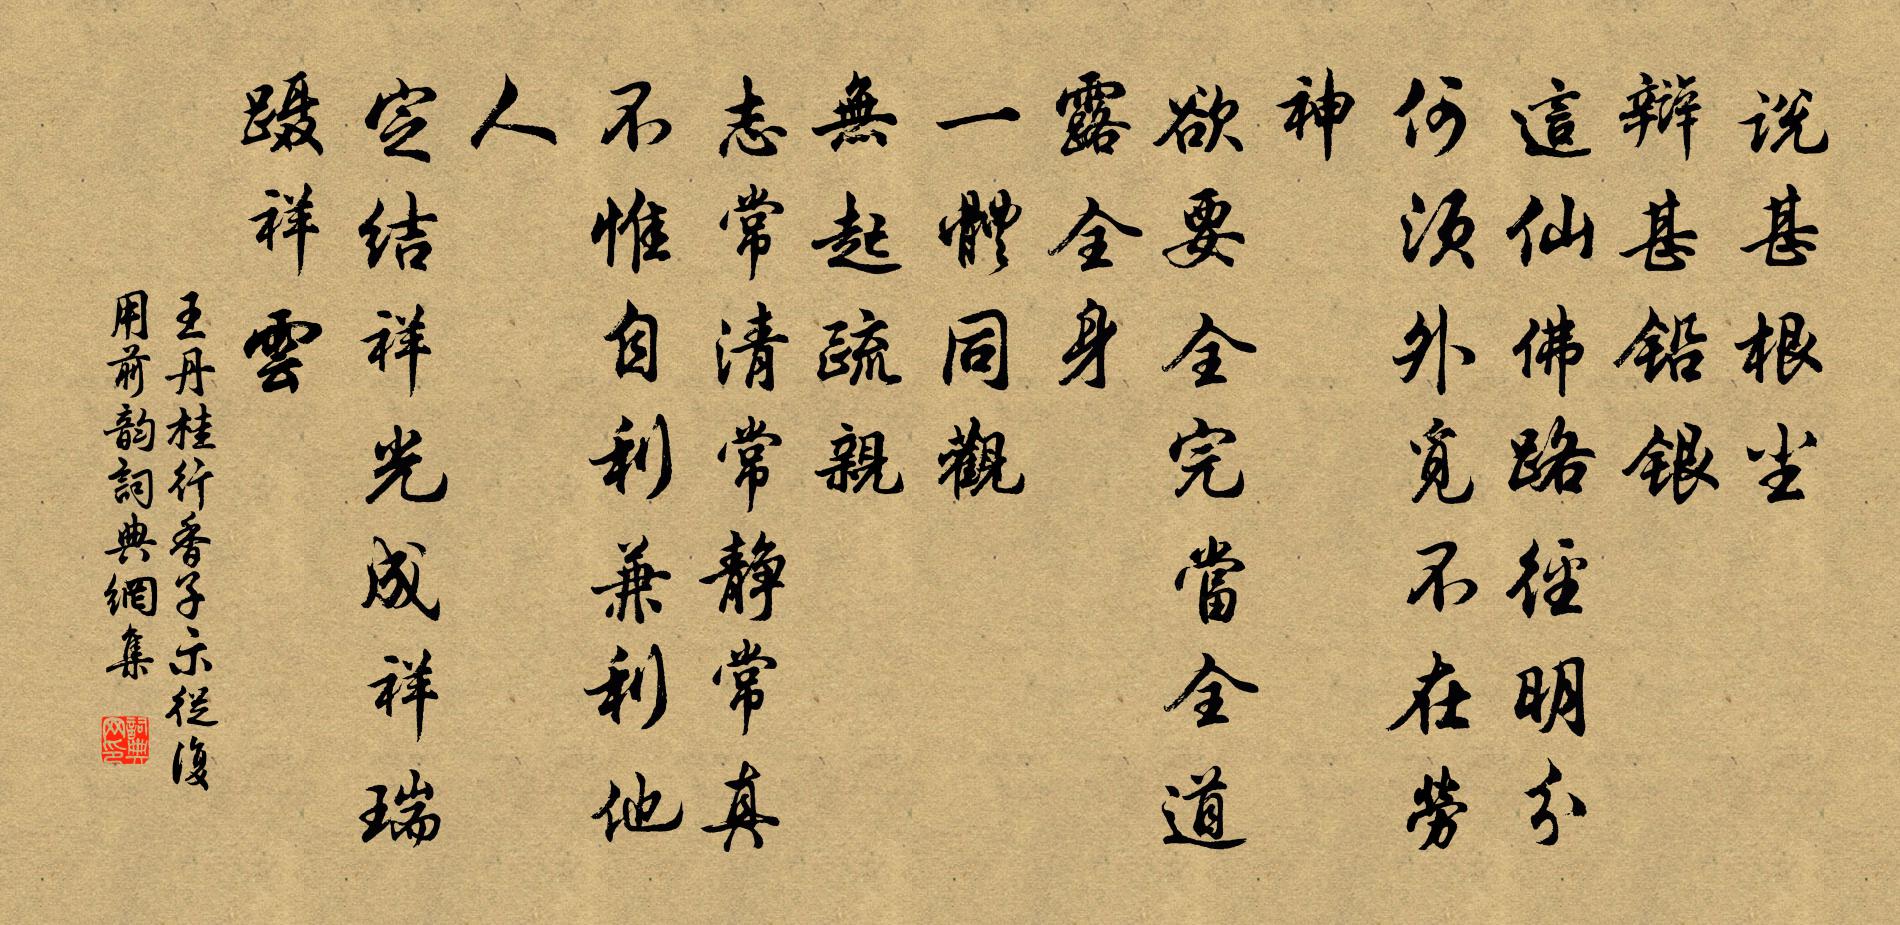 说甚根尘
辩甚铅银
這仙佛路径明分
何须外觅不在劳
神
欲要全完當全道
露全身
一體同觀
無起疏親
志常清常静常真
不惟自利兼利他
人
定结祥光成祥瑞
蹑祥雲
王丹桂行香子示從復
用前韵詞典網集
詞典网印